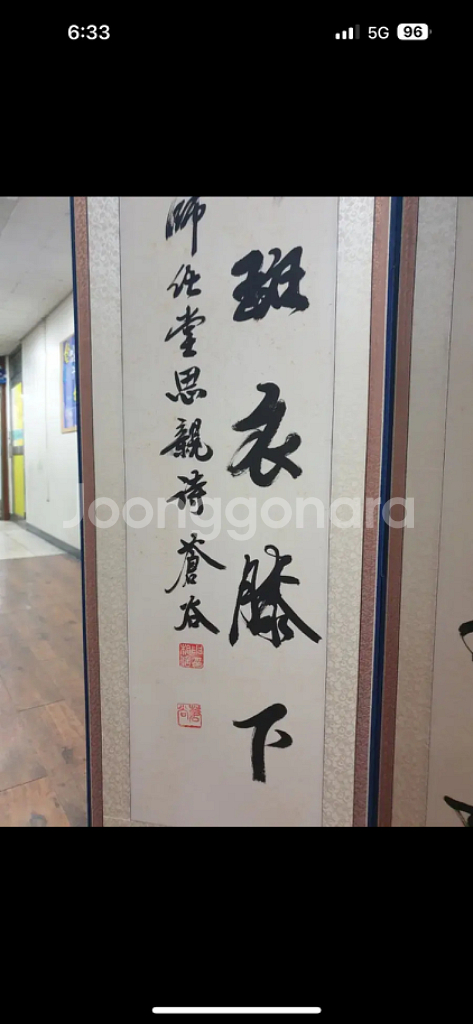 6:33
5G 96
斑衣膝下
師任堂思親詩 蒼谷
Joonggonara